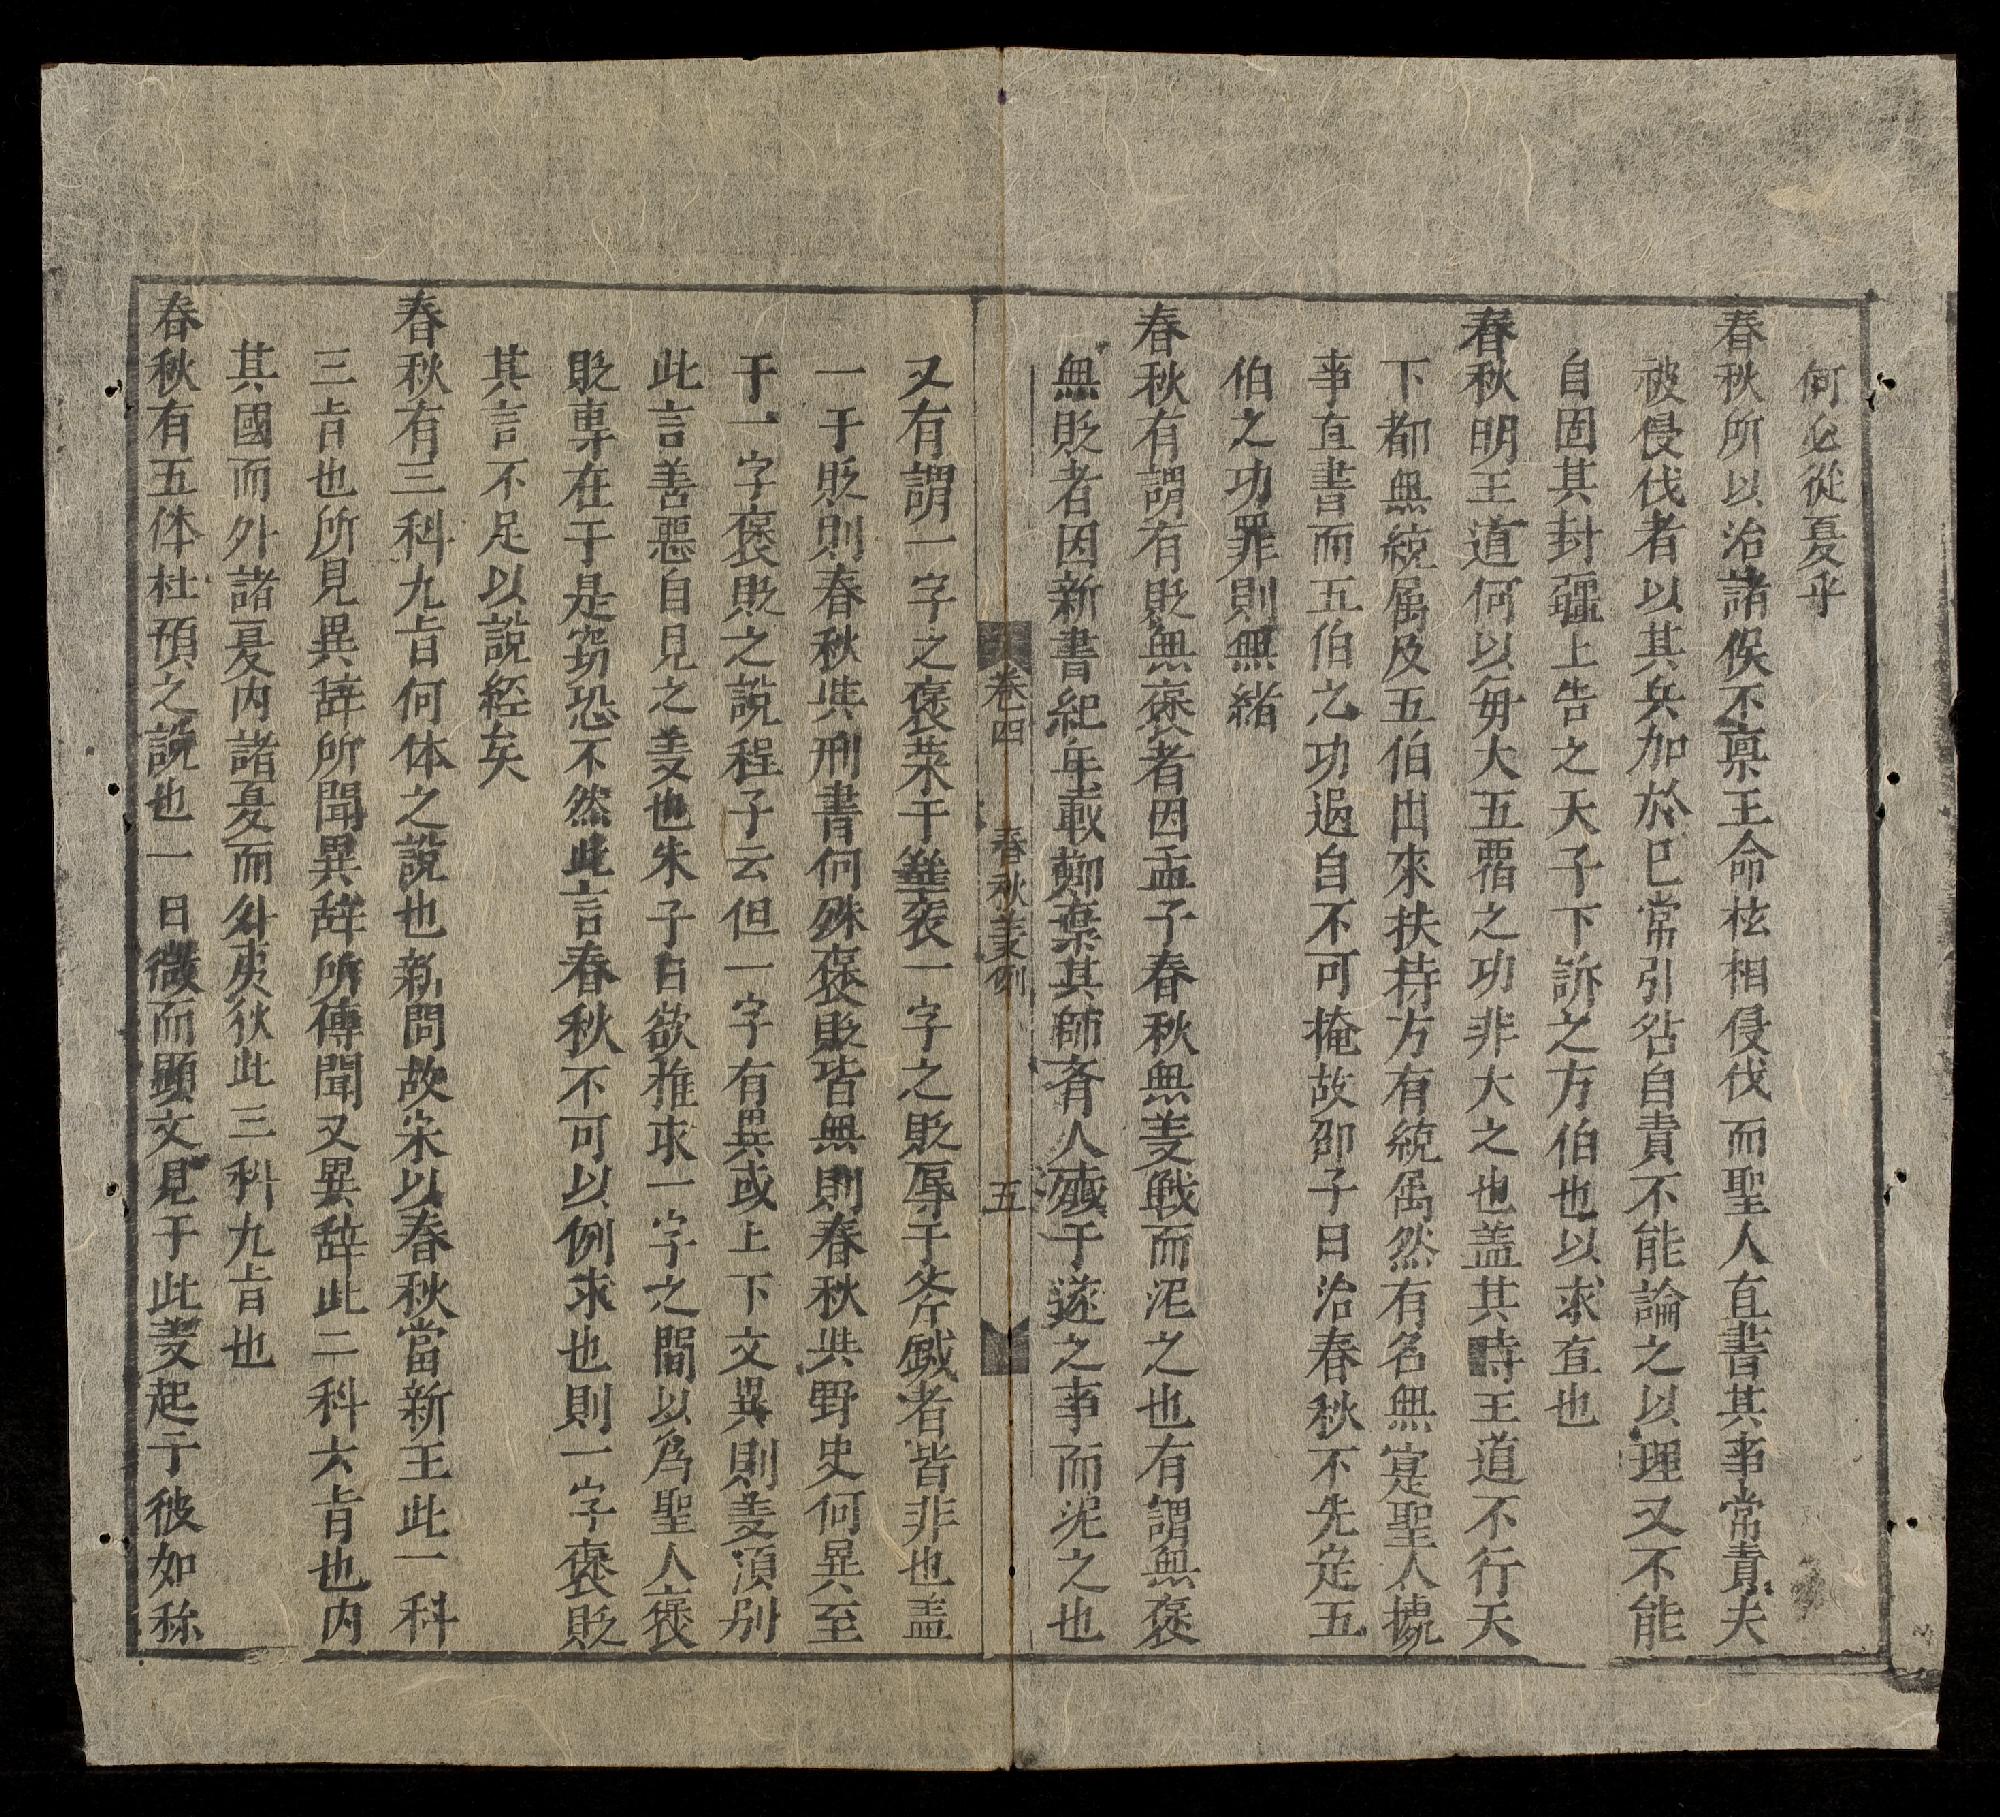 何必從憂乎
春秋所以治諸侯不禀王命枉相侵伐而聖人直書其事常責夫
被侵伐者以其兵加於已常引咎自責不能論之以理又不能
自固其封疆上告之天子下訴之方伯也以求直也
春秋明王道何以毎大五覇之功非大之也盖其時王道不行天
下都無統属及五伯出來扶持方有統属然有名無寔聖人摅
事直書而五伯之功過自不可掩故邵子曰治春秋不先定五
伯之功罪則無緒
春秋有謂有貶無褒者因孟子春秋無义戰而泥之也有謂無褒
無貶者因新書紀年載鄭棄其師斉人殱于遂之事而泥之也
卷四 春秋义例 五
又有謂一字之褒荣于華衮一字之貶辱于斧鉞者皆非也盖
一于貶則春秋共刑書何殊褒貶皆無則春秋共野史何異至
于一字褒貶之說程子云但一字有異或上下文異則义湏别
此言善惡自見之义也朱子曰欲推求一字之間以爲聖人褒
貶專在于是窃恐不然此言春秋不可以例求也則一字褒貶
其言不足以說經矣
春秋有三科九旨何体之說也新問故宋以春秋當新王此一科
三旨也所見異辞所聞異辞所傳聞又異辞此二科六旨也内
其國而外諸夏内諸夏而外夷狄此三科九旨也
春秋有五体杜預之說也一曰微而顯文見于此义起于彼如称